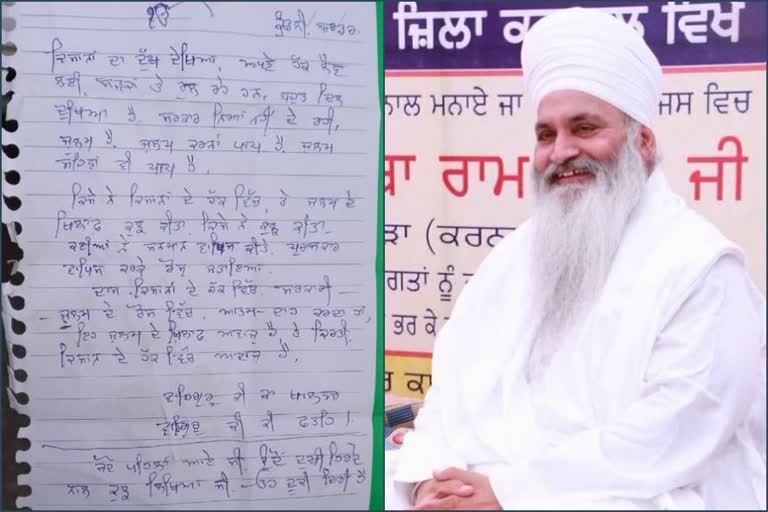 ੴ
ਕੁੰਡਲੀ ਬਾਰਡਰ
ਕਿਸਾਨਾਂ ਦਾ ਦੁੱਖ ਦੇਖਿਆ, ਆਪਣੇ ਹੱਕ ਲੈਣ
ਲਈ, ਸੜਕਾਂ ਤੇ ਰੁਲ ਰਹੇ ਹਨ. ਬਹੁਤ ਦਿਲ
ਦੁਖਿਆ ਹੈ. ਸਰਕਾਰ ਨਿਆਂ ਨਹੀਂ ਦੇ ਰਹੀ,
ਜੁਲਮ ਹੈ. ਜੁਲਮ ਕਰਨਾ ਪਾਪ ਹੈ. ਜੁਲਮ
ਸਹਿਣਾ ਵੀ ਪਾਪ ਹੈ.
ਕਿਸੇ ਨੇ ਕਿਸਾਨਾਂ ਦੇ ਹੱਕ ਵਿੱਚ, ਤੇ ਜੁਲਮ ਦੇ
ਖਿਲਾਫ ਕੁਝ ਕੀਤਾ. ਕਿਸੇ ਨੇ ਕੁਝ ਕੀਤਾ.
ਕਈਆਂ ਨੇ ਸਨਮਾਨ ਵਾਪਿਸ ਕੀਤੇ. ਪੁਰਸਕਾਰ
ਵਾਪਿਸ ਕਰਕੇ ਰੋਸ ਜਤਾਇਆ.
ਦਾਸ ਕਿਸਾਨਾਂ ਦੇ ਹੱਕ ਵਿੱਚ. ਸਰਕਾਰੀ -
- ਜੁਲਮ ਦੇ ਰੋਸ ਵਿੱਚ. ਆਤਮ-ਦਾਹ ਕਰਦਾ ਹਾਂ,
ਇਹ ਜੁਲਮ ਦੇ ਖਿਲਾਫ ਅਵਾਜ਼ ਹੈ ਤੇ ਕਿਰਤੀ
ਕਿਸਾਨ ਦੇ ਹੱਕ ਵਿੱਚ ਅਵਾਜ਼ ਹੈ.
ਵਾਹਿਗੁਰੂ ਜੀ ਕਾ ਖਾਲਸਾ
ਵਾਹਿਗੁਰੂ ਜੀ ਕੀ ਫਤਹਿ।
ਜਦੋਂ ਪਹਿਲਾਂ ਆਏ ਸੀ
ਨਾਲ ਕੁਝ ਲਿਖਿਆ ਸੀ. -
ਜ਼ਿਲਾ ਵਿਖੇ
ਨਾਲ ਮਨਾਏ ਜਾ ਜਿਸ ਵਿਚ
ਬਾ ਰਾਮ ਜੀ
ੜਾ (ਕਰਨ
ਗਤਾਂ ਨੂੰ
ਭਰ ਕੇ
ਰ ਕਾ